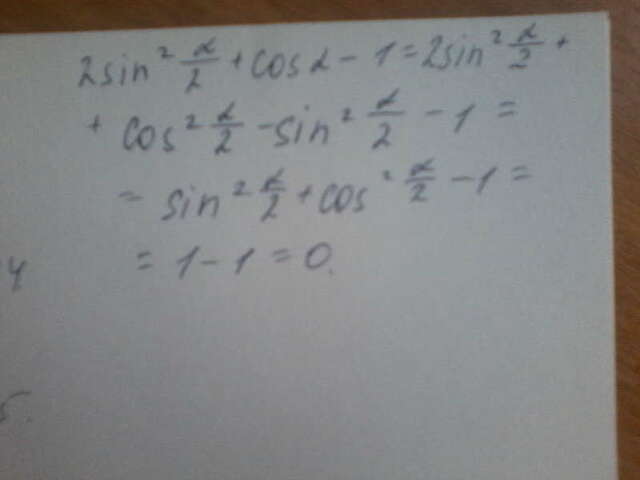 2sin² α/2 + cosα - 1 = 2sin² α/2 +
+ cos² α/2 - sin² α/2 - 1 =
= sin² α/2 + cos² α/2 - 1 =
= 1 - 1 = 0.
4
5.